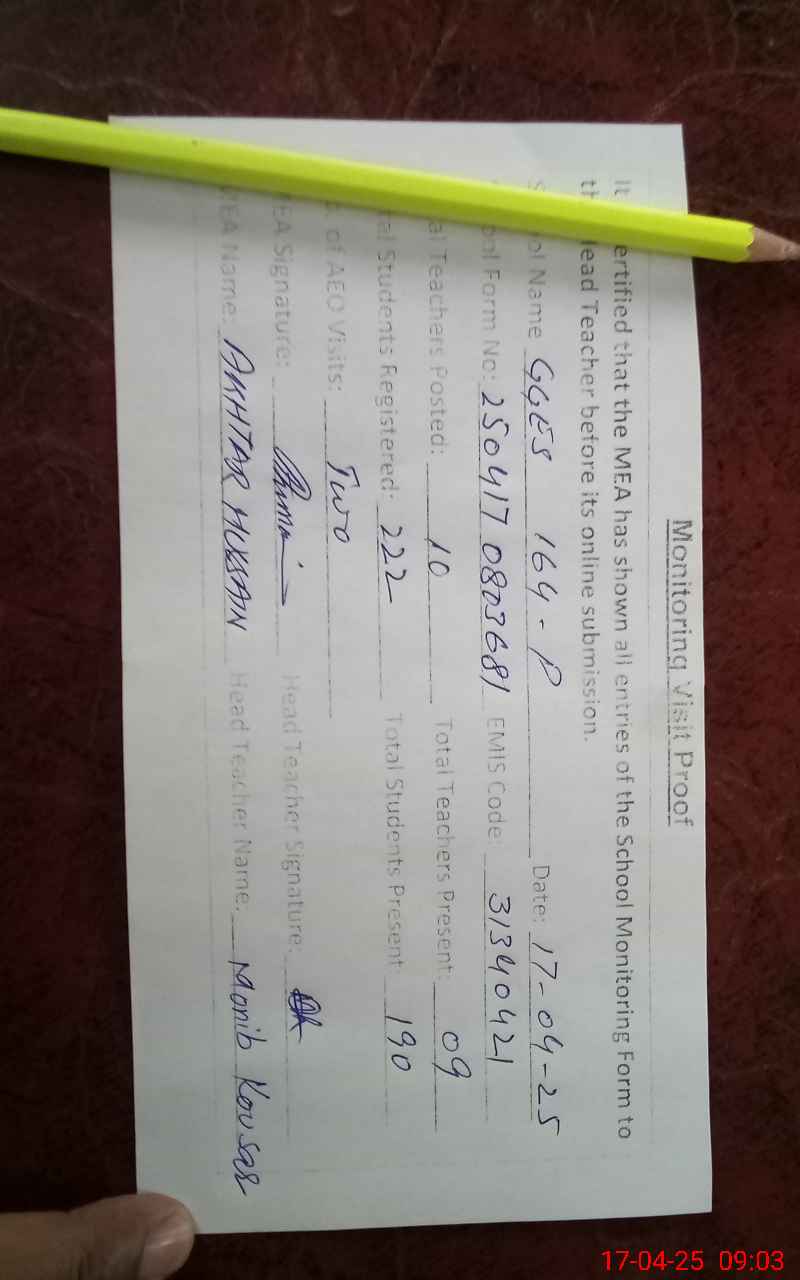 Monitoring Visit Proof
It ertified that the MEA has shown all entries of the School Monitoring Form to
th Head Teacher before its online submission.
ol Name GGES 164-P Date: 17-04-25
ool Form No: 250417 0803681 EMIS Code: 31340421
al Teachers Posted: 10 Total Teachers Present: 09
tal Students Registered: 222 Total Students Present 190
. of AEO Visits: Two
MEA Signature: Head Teacher Signature:
MEA Name: AKHTAR HUSSAIN Head Teacher Name: Monib Kousar
17-04-25 09:03